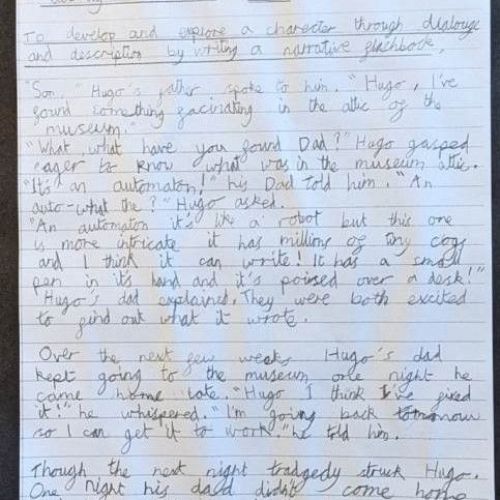 To develop and explore a character through dialouge
and description by writing a narrative flashback.
"Son." Hugo's father spoke to him. "Hugo, I've
found something facinating in the attic of the
museum."
"What, what have you found Dad?" Hugo gasped
eager to know what was in the museum attic.
"It's an automaton!" his Dad told him. "An
auto-what the?" Hugo asked.
"An automaton it's like a robot but this one
is more intricate it has millions of tiny cogs
and I think it can write! It has a small
pen in it's hand and it's poised over a desk!"
Hugo's dad explained. They were both excited
to find out what it wrote.
Over the next few weeks Hugo's dad
kept going to the museum one night he
came home late. "Hugo I think I've fixed
it!" he whispered. "I'm going back tomorrow
so I can get it to work." he told him.
Though the next night tradgedy struck Hugo.
One night his dad didn't come home